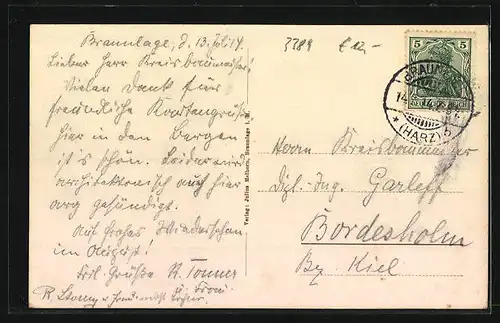 Braunlage, d. 13. Juli 14.
Lieber Herr Kreisbaumeister!
Vielen Dank für
freundliche Kartengrüße
hier in den Bergen
ist's schön. Leider wird
architektonisch auch hier
arg gesündigt.
Auf frohes Wiedersehen
im August!
Frdl. Grüße R. Tonner
u. Frau
3389 € 12,-
5 5
BRAUNLAGE
14
* (HARZ) b
Verlag: Julius Braunlage i. H.
Herrn Kreisbaumeister
Dipl.-Ing. Garleff
Bordesholm
Bz. Kiel